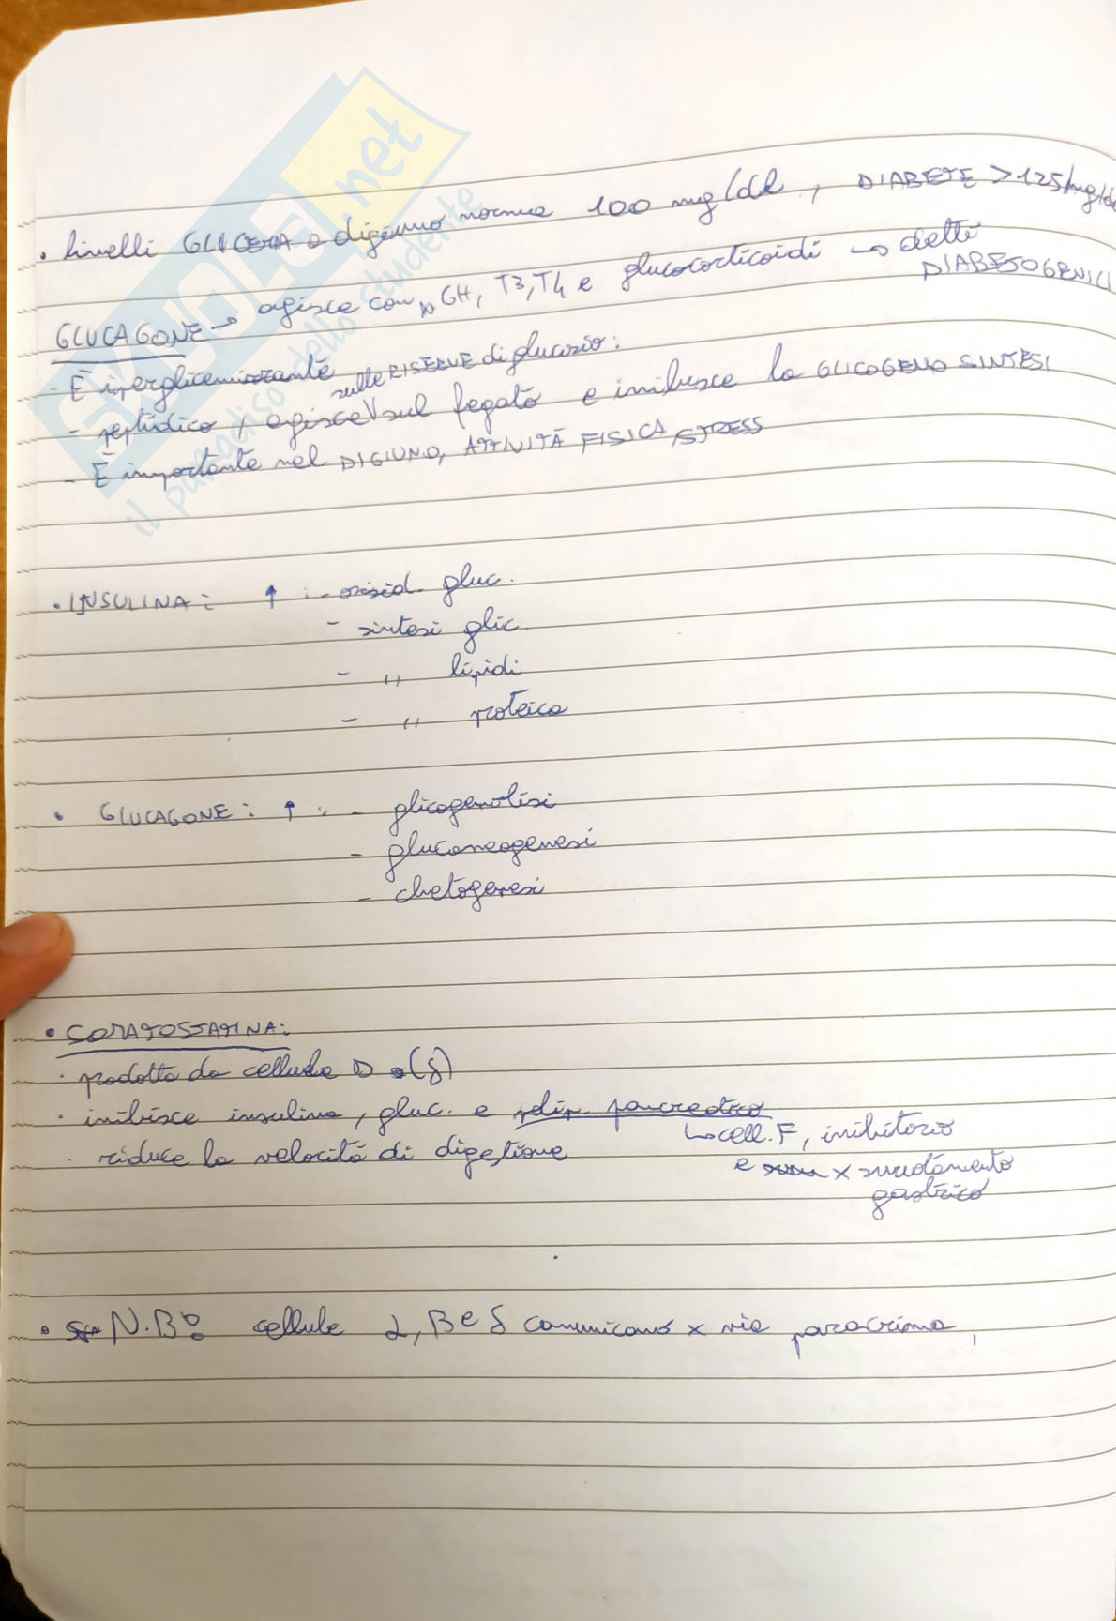 • livelli GLICEMIA a digiuno norma 100 mg/dL, DIABETE > 125 mg/dL
GLUCAGONE → agisce con GH, T3, T4 e glucocorticoidi → detti
DIABETOGENICI
- È iperglicemizzante
sulle RISERVE di glucosio:
- peptidico, agisce sul fegato e inibisce la GLICOGENO SINTESI
- È importante nel DIGIUNO, ATTIVITÀ FISICA, STRESS
• INSULINA: ↑ : - ossid. gluc.
- sintesi glic.
- " lipidi
- " proteica
• GLUCAGONE: ↑ : - glicogenolisi
- gluconeogenesi
- chetogenesi
• SOMATOSTATINA:
· prodotta da cellule D (δ)
· inibisce insulina, gluc. e polip. pancreatico
↳ cell. F, inibitorio
· riduce la velocità di digestione
e x svuotamento
gastrico
• N.B: cellule α, β e δ comunicano x via paracrina
SKUOLA.net
il paradiso dello studente